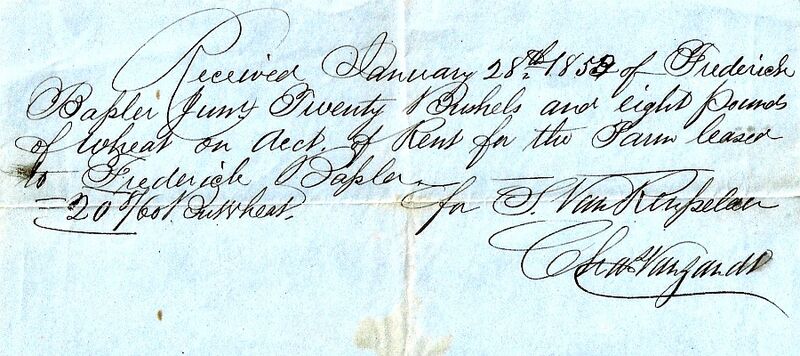 Received January 28th 1852 of Frederick
Bassler Junr Twenty Bushels and eight pounds
of Wheat on Acct. of Rent for the Farm leased
to Frederick Bassler
= 20 8/60 Bu Wheat. for S. Van Rensselaer
Chas Vanzandt